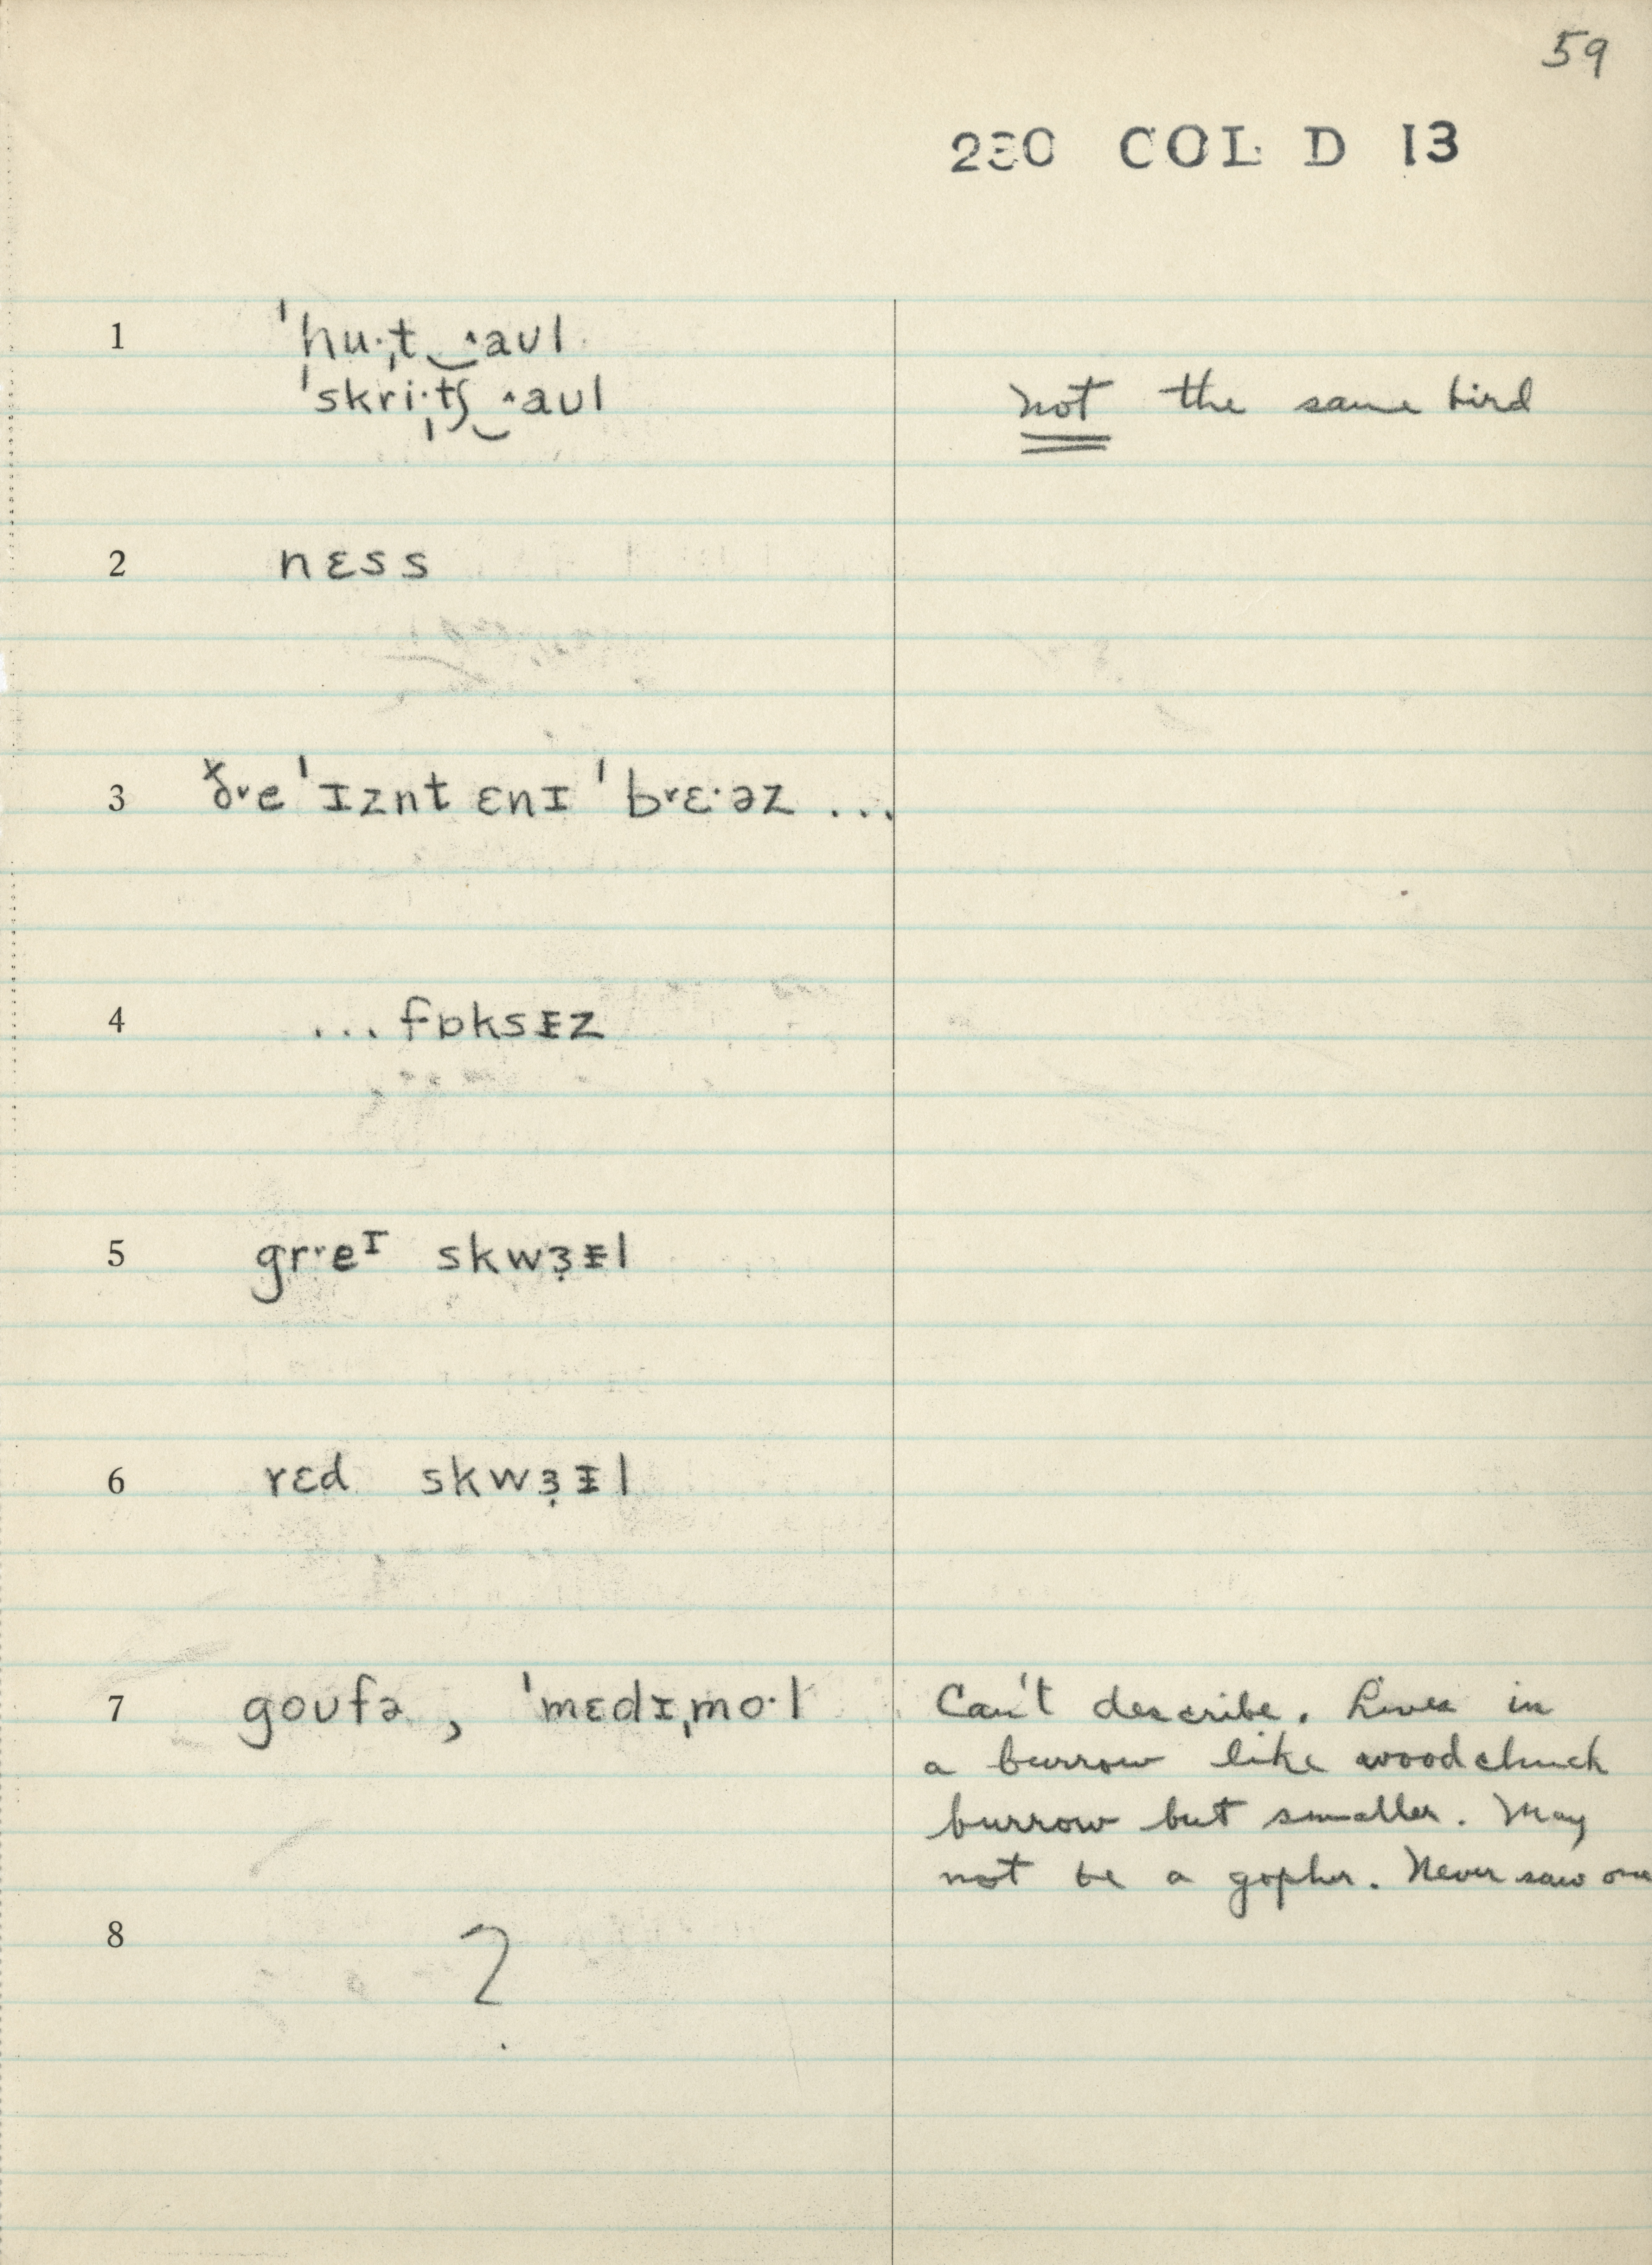 59
230 COL D 13
1 ˈhu·ˌt‿˄aʊl
ˈskri·ˌtʃ‿˄aʊl not the same bird
2 nɛss
3 ð˅e ˈɪznt ɛnɪ ˈb˅ɛ·əz ...
4 ... fɒksᵻz
5 gr˅eᶦ skwɜ̣ᵻl
6 rɛd skwɜ̣ᵻl
7 goʊfə, ˈmɛdɪˌmo·l Can't describe. Lives in
a burrow like woodchuck
burrow but smaller. May
not be a gopher. Never saw one
8 ?